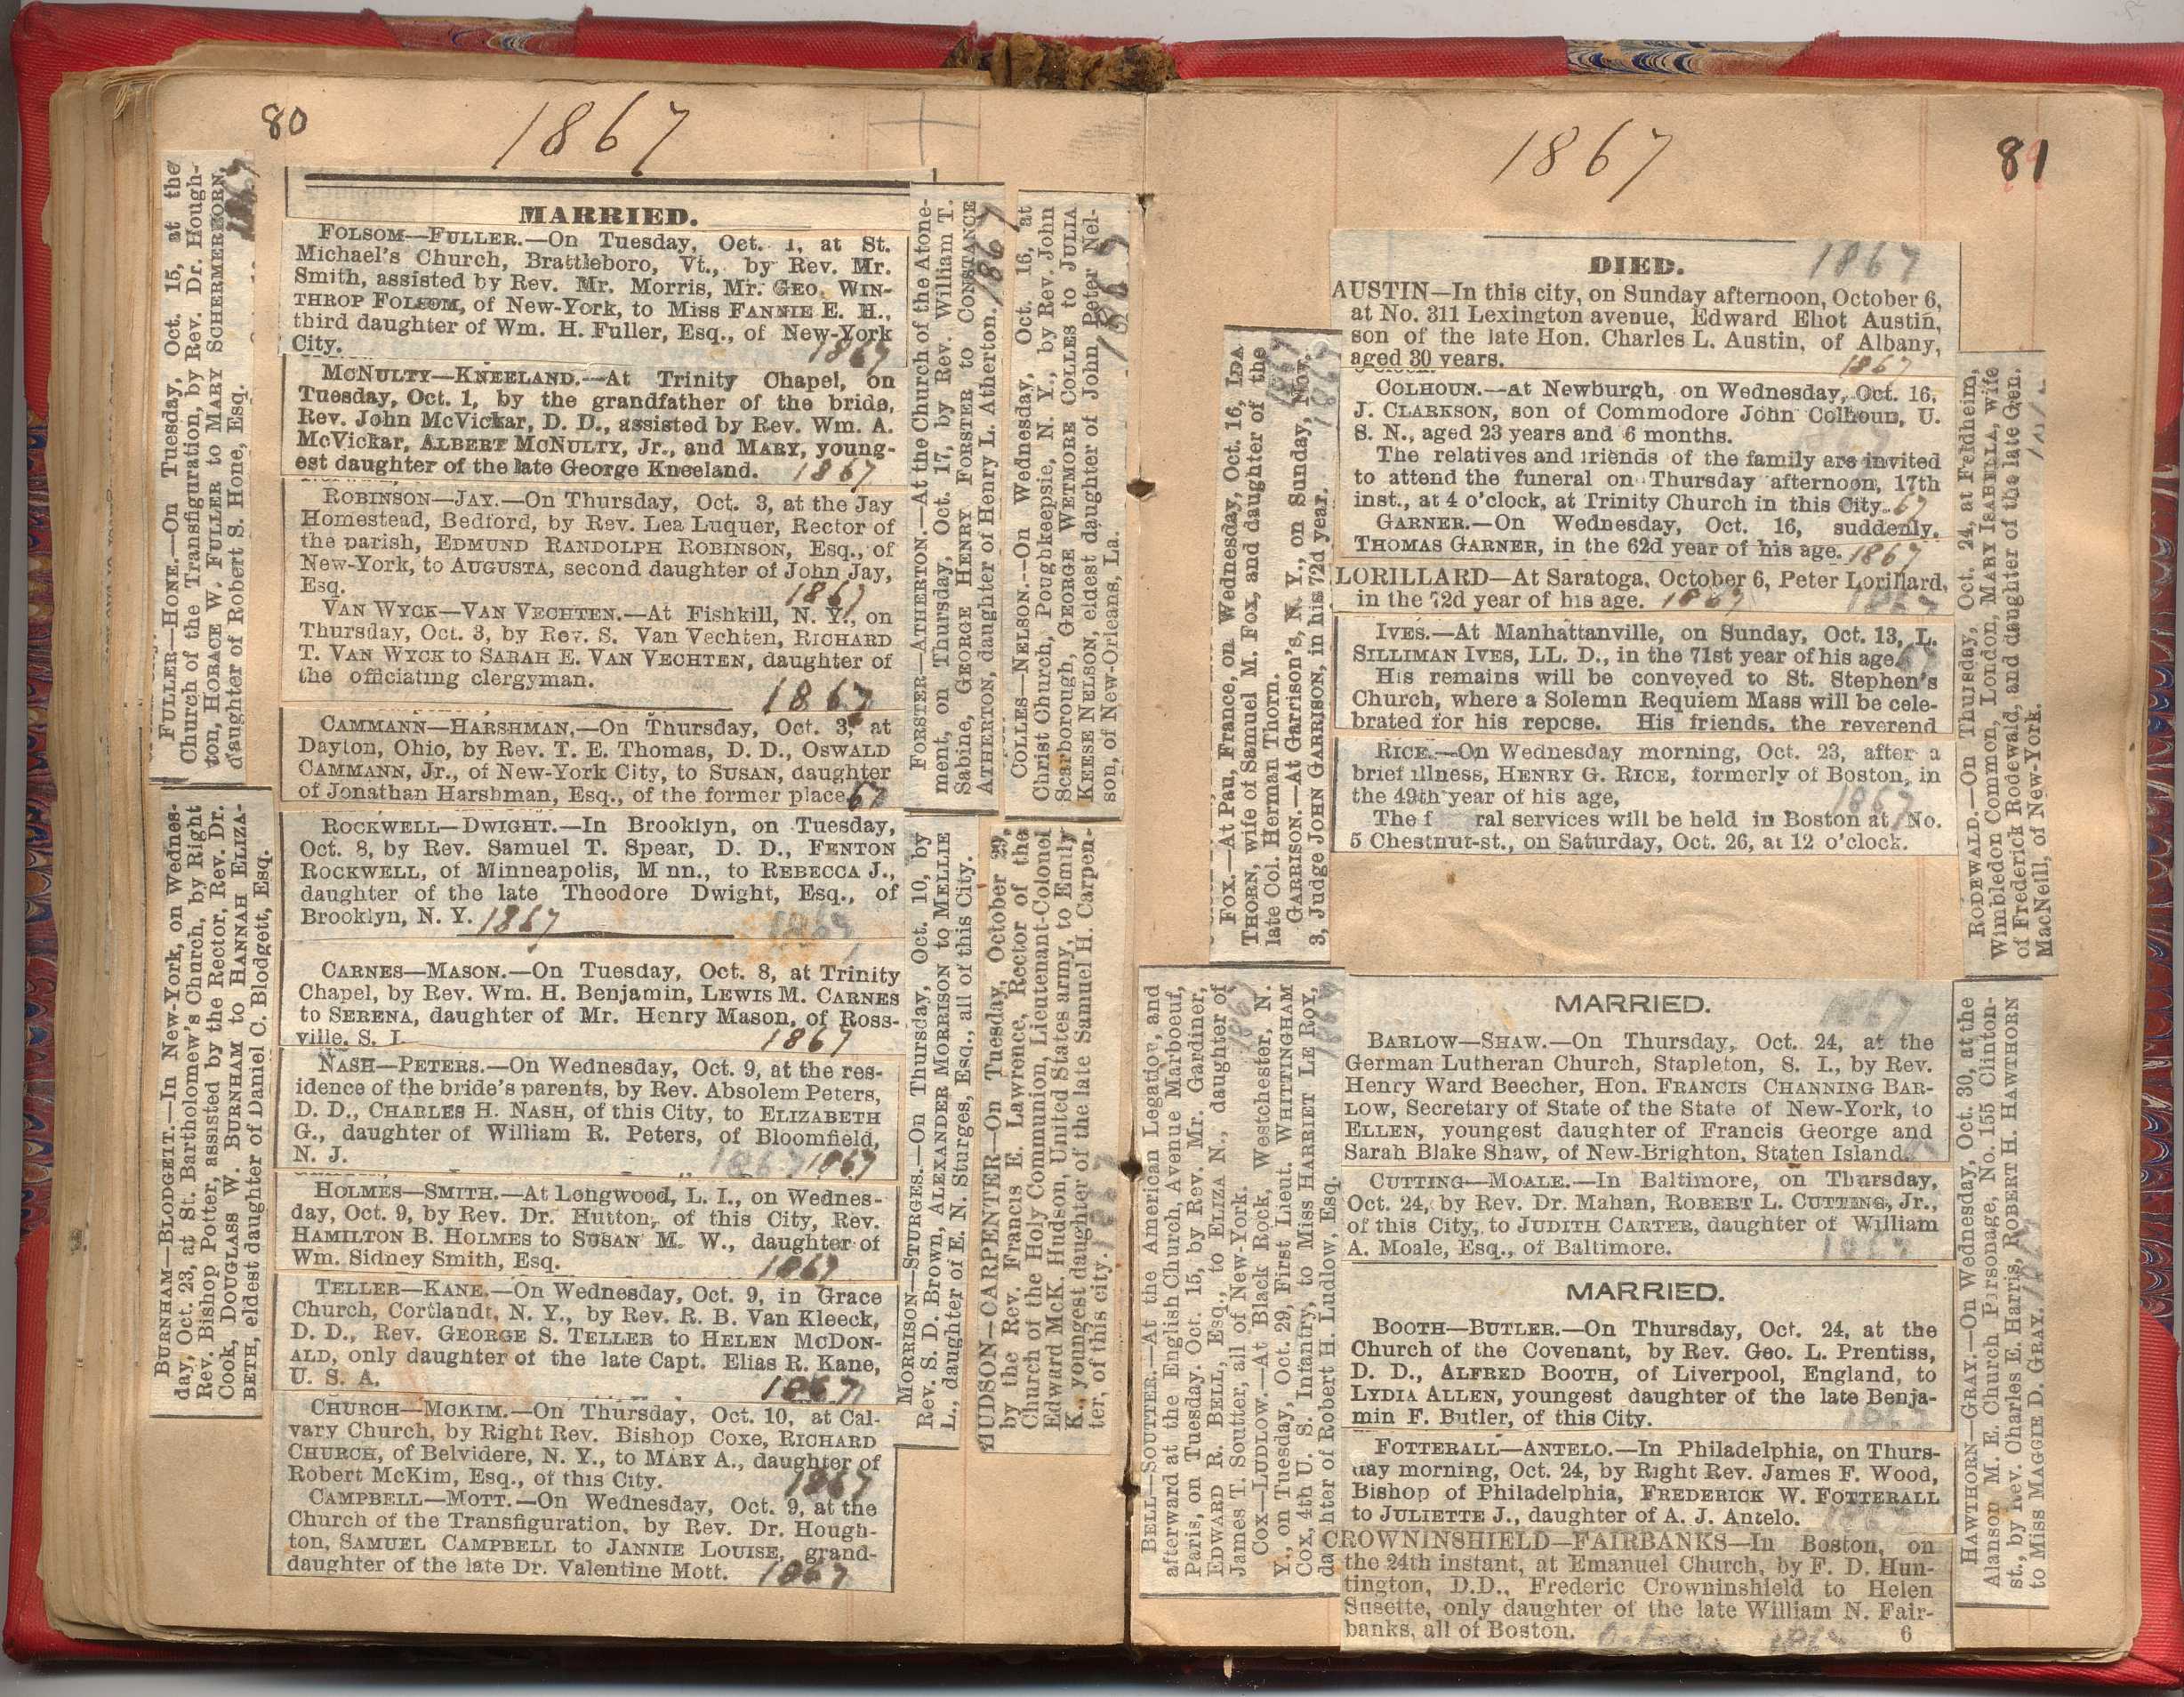 80
1867
MARRIED.
FOLSOM—FULLER.—On Tuesday, Oct. 1, at St.
Michael's Church, Brattleboro, Vt., by Rev. Mr.
Smith, assisted by Rev. Mr. Morris, Mr. GEO. WIN-
THROP FOLSOM, of New-York, to Miss FANNIE E. H.,
third daughter of Wm. H. Fuller, Esq., of New-York
City. 1867
MCNULTY—KNEELAND.—At Trinity Chapel, on
Tuesday, Oct. 1, by the grandfather of the bride,
Rev. John McVickar, D. D., assisted by Rev. Wm. A.
McVickar, ALBERT MCNULTY, Jr., and MARY, young-
est daughter of the late George Kneeland. 1867
ROBINSON—JAY.—On Thursday, Oct. 3, at the Jay
Homestead, Bedford, by Rev. Lea Luquer, Rector of
the parish, EDMUND RANDOLPH ROBINSON, Esq., of
New-York, to AUGUSTA, second daughter of John Jay,
Esq. 1867
VAN WYCK—VAN VECHTEN.—At Fishkill, N. Y., on
Thursday, Oct. 3, by Rev. S. Van Vechten, RICHARD
T. VAN WYCK to SARAH E. VAN VECHTEN, daughter of
the officiating clergyman.
1867
CAMMANN—HARSHMAN.—On Thursday, Oct. 3, at
Dayton, Ohio, by Rev. T. E. Thomas, D. D., OSWALD
CAMMANN, Jr., of New-York City, to SUSAN, daughter
of Jonathan Harshman, Esq., of the former place. 67
ROCKWELL—DWIGHT.—In Brooklyn, on Tuesday,
Oct. 8, by Rev. Samuel T. Spear, D. D., FENTON
ROCKWELL, of Minneapolis, M nn., to REBECCA J.,
daughter of the late Theodore Dwight, Esq., of
Brooklyn, N. Y. 1867
1867
CARNES—MASON.—On Tuesday, Oct. 8, at Trinity
Chapel, by Rev. Wm. H. Benjamin, LEWIS M. CARNES
to SERENA, daughter of Mr. Henry Mason, of Ross-
ville, S. I. 1867
NASH—PETERS.—On Wednesday, Oct. 9, at the res-
idence of the bride's parents, by Rev. Absolem Peters,
D. D., CHARLES H. NASH, of this City, to ELIZABETH
G., daughter of William R. Peters, of Bloomfield,
N. J. 1867 1867
HOLMES—SMITH.—At Longwood, L. I., on Wednes-
day, Oct. 9, by Rev. Dr. Hutton, of this City, Rev.
HAMILTON B. HOLMES to SUSAN M. W., daughter of
Wm. Sidney Smith, Esq. 1867
TELLER—KANE.—On Wednesday, Oct. 9, in Grace
Church, Cortlandt, N. Y., by Rev. R. B. Van Kleeck,
D. D., Rev. GEORGE S. TELLER to HELEN MCDON-
ALD, only daughter of the late Capt. Elias R. Kane,
U. S. A. 1867
CHURCH—MCKIM.—On Thursday, Oct. 10, at Cal-
vary Church, by Right Rev. Bishop Coxe, RICHARD
CHURCH, of Belvidere, N. Y., to MARY A., daughter of
Robert McKim, Esq., of this City. 1867
CAMPBELL—MOTT.—On Wednesday, Oct. 9, at the
Church of the Transfiguration, by Rev. Dr. Hough-
ton, SAMUEL CAMPBELL to JANNIE LOUISE, grand-
daughter of the late Dr. Valentine Mott. 1867
FULLER—HONE.—On Tuesday, Oct. 15, at the
Church of the Transfiguration, by Rev. Dr. Hough-
ton, HORACE W. FULLER to MARY SCHERMERHORN,
daughter of Robert S. Hone, Esq. 1867
BURNHAM—BLODGETT.—In New-York, on Wednes-
day, Oct. 23, at St. Bartholomew's Church, by Right
Rev. Bishop Potter, assisted by the Rector, Rev. Dr.
Cook, DOUGLASS W. BURNHAM to HANNAH ELIZA-
BETH, eldest daughter of Daniel C. Blodgett, Esq.
FORSTER—ATHERTON.—At the Church of the Atone-
ment, on Thursday, Oct. 17, by Rev. William T.
Sabine, GEORGE HENRY FORSTER to CONSTANCE
ATHERTON, daughter of Henry L. Atherton. 1867
COLLES—NELSON.—On Wednesday, Oct. 16, at
Christ Church, Poughkeepsie, N. Y., by Rev. John
Scarborough, GEORGE WETMORE COLLES to JULIA
KEESE NELSON, eldest daughter of John Peter Nel-
son, of New-Orleans, La. 1867
MORRISON—STURGES.—On Thursday, Oct. 10, by
Rev. S. D. Brown, ALEXANDER MORRISON to MELLIE
L., daughter of E. N. Sturges, Esq., all of this City.
HUDSON—CARPENTER—On Tuesday, October 29,
by the Rev. Francis E. Lawrence, Rector of the
Church of the Holy Communion, Lieutenant-Colonel
Edward McK. Hudson, United States army, to Emily
K., youngest daughter of the late Samuel H. Carpen-
ter, of this city. 1867
1867
81
DIED. 1867
AUSTIN—In this city, on Sunday afternoon, October 6,
at No. 311 Lexington avenue, Edward Eliot Austin,
son of the late Hon. Charles L. Austin, of Albany,
aged 30 years. 1867
COLHOUN.—At Newburgh, on Wednesday, Oct. 16,
J. CLARKSON, son of Commodore John Colhoun, U.
S. N., aged 23 years and 6 months.
The relatives and friends of the family are invited
to attend the funeral on Thursday afternoon, 17th
inst., at 4 o'clock, at Trinity Church in this City. 67
GARNER.—On Wednesday, Oct. 16, suddenly,
THOMAS GARNER, in the 62d year of his age. 1867
LORILLARD—At Saratoga, October 6, Peter Lorillard,
in the 72d year of his age. 1867 1867
IVES.—At Manhattanville, on Sunday, Oct. 13, L.
SILLIMAN IVES, LL. D., in the 71st year of his age. 67
His remains will be conveyed to St. Stephen's
Church, where a Solemn Requiem Mass will be cele-
brated for his repose. His friends, the reverend
RICE.—On Wednesday morning, Oct. 23, after a
brief illness, HENRY G. RICE, formerly of Boston, in
the 49th year of his age, 1867
The f ral services will be held in Boston at No.
5 Chestnut-st., on Saturday, Oct. 26, at 12 o'clock.
FOX.—At Pau, France, on Wednesday, Oct. 16, IDA
THORN, wife of Samuel M. Fox, and daughter of the
late Col. Herman Thorn. 1867
GARRISON.—At Garrison's, N. Y., on Sunday, Nov.
3, Judge JOHN GARRISON, in his 72d year. 1867
RODEWALD.—On Thursday, Oct. 24, at Feldheim,
Wimbledon Common, London, MARY ISABELLA, wife
of Frederick Rodewald, and daughter of the late Gen.
MacNeill, of New-York.
MARRIED. 1867
BARLOW—SHAW.—On Thursday, Oct. 24, at the
German Lutheran Church, Stapleton, S. I., by Rev.
Henry Ward Beecher, Hon. FRANCIS CHANNING BAR-
LOW, Secretary of State of the State of New-York, to
ELLEN, youngest daughter of Francis George and
Sarah Blake Shaw, of New-Brighton, Staten Island.
CUTTING—MOALE.—In Baltimore, on Thursday,
Oct. 24, by Rev. Dr. Mahan, ROBERT L. CUTTING, Jr.,
of this City, to JUDITH CARTER, daughter of William
A. Moale, Esq., of Baltimore. 1867
MARRIED.
BOOTH—BUTLER.—On Thursday, Oct. 24, at the
Church of the Covenant, by Rev. Geo. L. Prentiss,
D. D., ALFRED BOOTH, of Liverpool, England, to
LYDIA ALLEN, youngest daughter of the late Benja-
min F. Butler, of this City. 1867
FOTTERALL—ANTELO.—In Philadelphia, on Thurs-
day morning, Oct. 24, by Right Rev. James F. Wood,
Bishop of Philadelphia, FREDERICK W. FOTTERALL
to JULIETTE J., daughter of A. J. Antelo. 1867
CROWNINSHIELD—FAIRBANKS—In Boston, on
the 24th instant, at Emanuel Church, by F. D. Hun-
tington, D.D., Frederic Crowninshield to Helen
Susette, only daughter of the late William N. Fair-
banks, all of Boston. October 1867 6
BELL—SOUTTER.—At the American Legation, and
afterward at the English Church, Avenue Marboeuf,
Paris, on Tuesday, Oct. 15, by Rev. Mr. Gardiner,
EDWARD R. BELL, Esq., to ELIZA N., daughter of
James T. Soutter, all of New-York. 1867
COX—LUDLOW.—At Black Rock, Westchester, N.
Y., on Tuesday, Oct. 29, First Lieut. WHITTINGHAM
COX, 4th U. S. Infantry, to Miss HARRIET LE ROY,
daughter of Robert H. Ludlow, Esq. 1867
HAWTHORN—GRAY.—On Wednesday, Oct. 30, at the
Alanson M. E. Church Parsonage, No. 155 Clinton-
st., by Rev. Charles E. Harris, ROBERT H. HAWTHORN
to Miss MAGGIE D. GRAY.